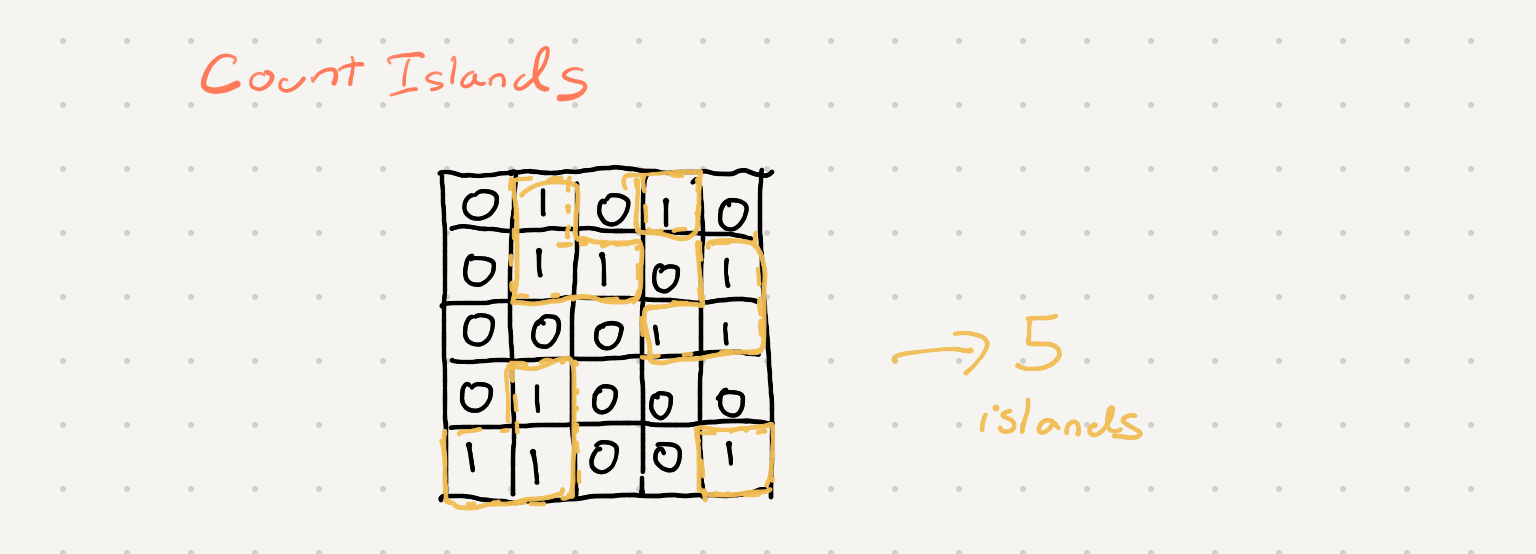 Count Islands
0 1 0 1 0
0 1 1 0 1
0 0 0 1 1
0 1 0 0 0
1 1 0 0 1
→ 5
islands